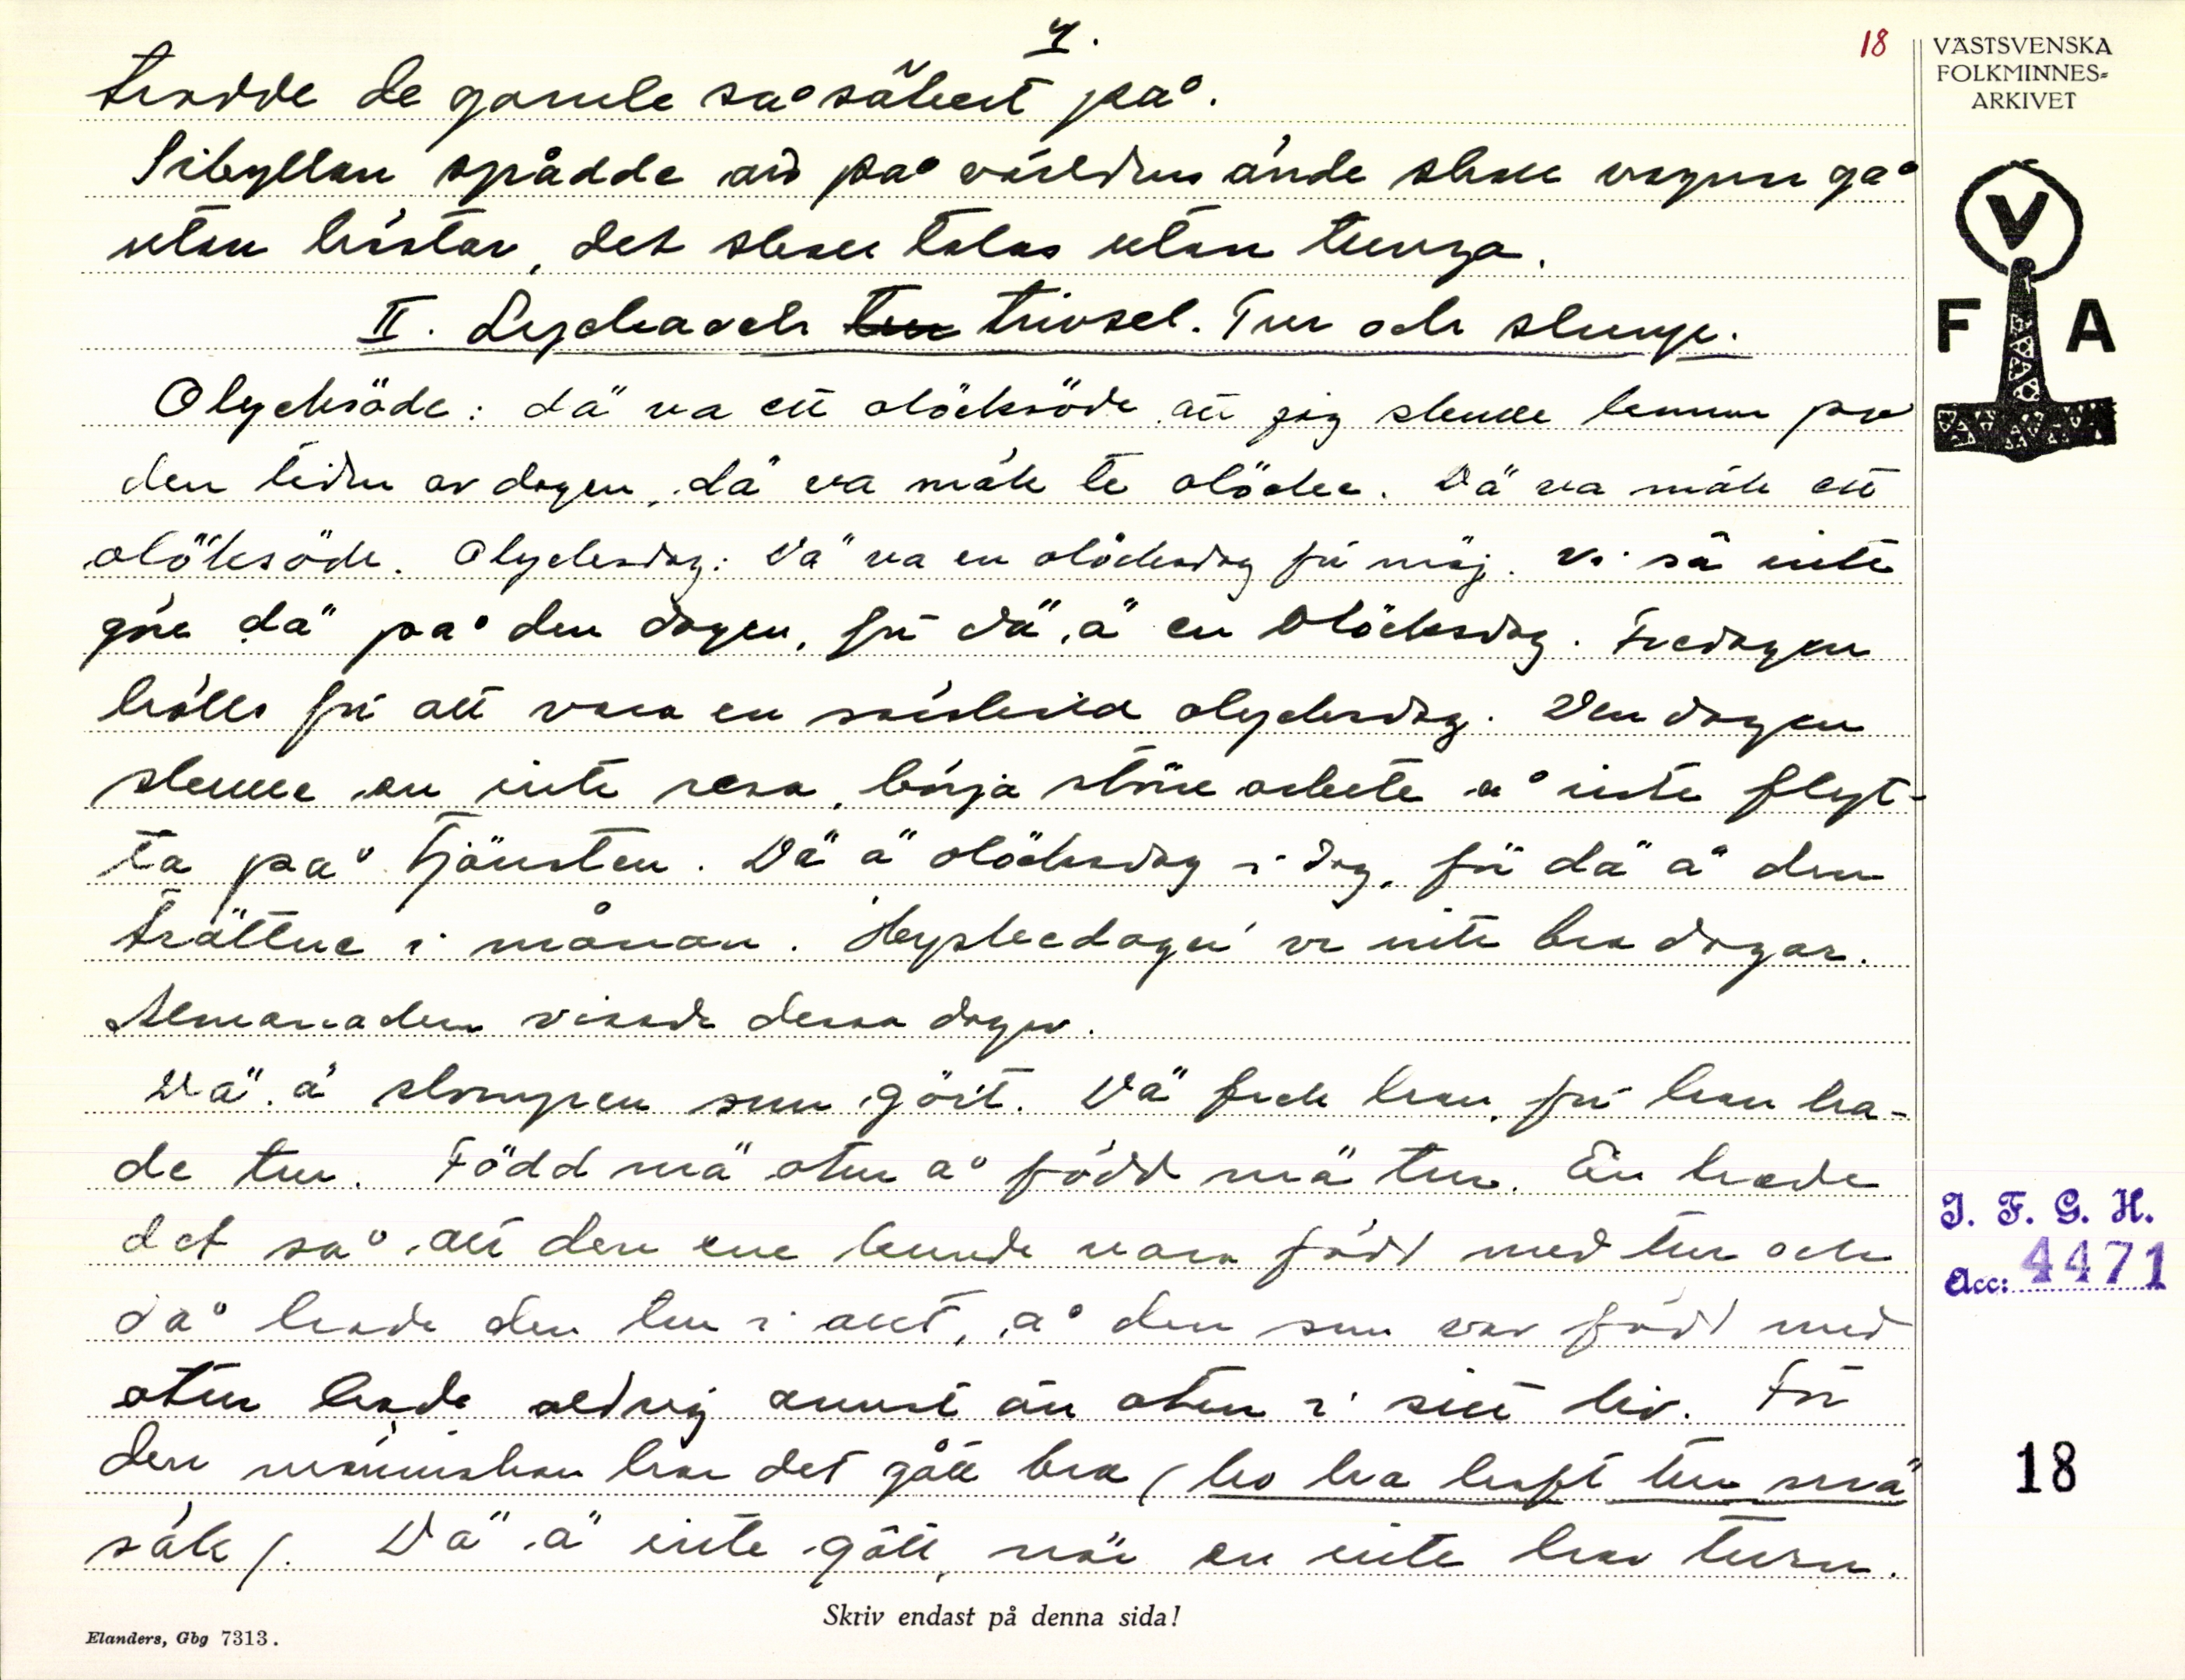 4.
18
VÄSTSVENSKA
FOLKMINNES-
ARKIVET
trodde de gamle så säkert på.
Sibyllan spådde att på världens ände skall vagnen gå
utan hästar, det skall talas utan tunga.
II. Lycka och tur trivsel. Tur och slump.
Olycksöde: dä va ett olöcksöde att jag skulle komma på
den tiden av dagen, dä va mäk te olöcke. Dä va mäk ett
olöksöde. Olycksdag: Dä va en olöcksdag för mäj. Vi sä inte
göre dä på den dagen, för dä ä en olöcksdag. Fredagen
hölls för att vara en särskild olycksdag. Den dagen
skulle en inte resa, börja större arbete å inte flyt-
ta på tjänsten. Dä ä olöcksdag i dag, för dä ä den
trättne i månan. Hyskedager va inte bra dagar.
Almanackan visade dessa dagar.
Dä ä slumpen som gört. Dä fick han, för han ha-
de tur. Född mä otur å född mä tur. En trodde
det så, att den ene kunde vara född med tur och
då hade den tur i allt, å den som var född med
otur hade aldrig annat än otur i sitt liv. För
den människan har det gått bra (ho ha haft tur mä
säk). Dä ä inte gått, när en inte har turn.
V
F A
I. F. G. H.
Acc: 4471
18
Skriv endast på denna sida!
Elanders, Gbg 7313.